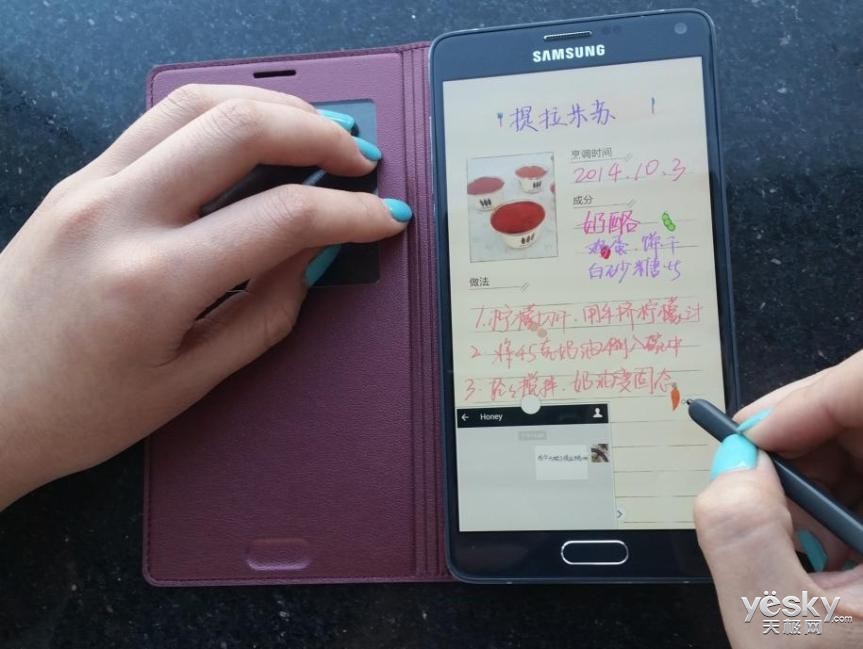 SAMSUNG
提拉米苏
烹调时间
2014.10.3
成分
奶酪
鸡蛋.饼干
白砂糖
做法
1.柠檬切片.用手挤柠檬汁
2.将45克奶油倒入碗中
3.轻轻搅拌.奶油变固态
Honey
yësky.com
天极网